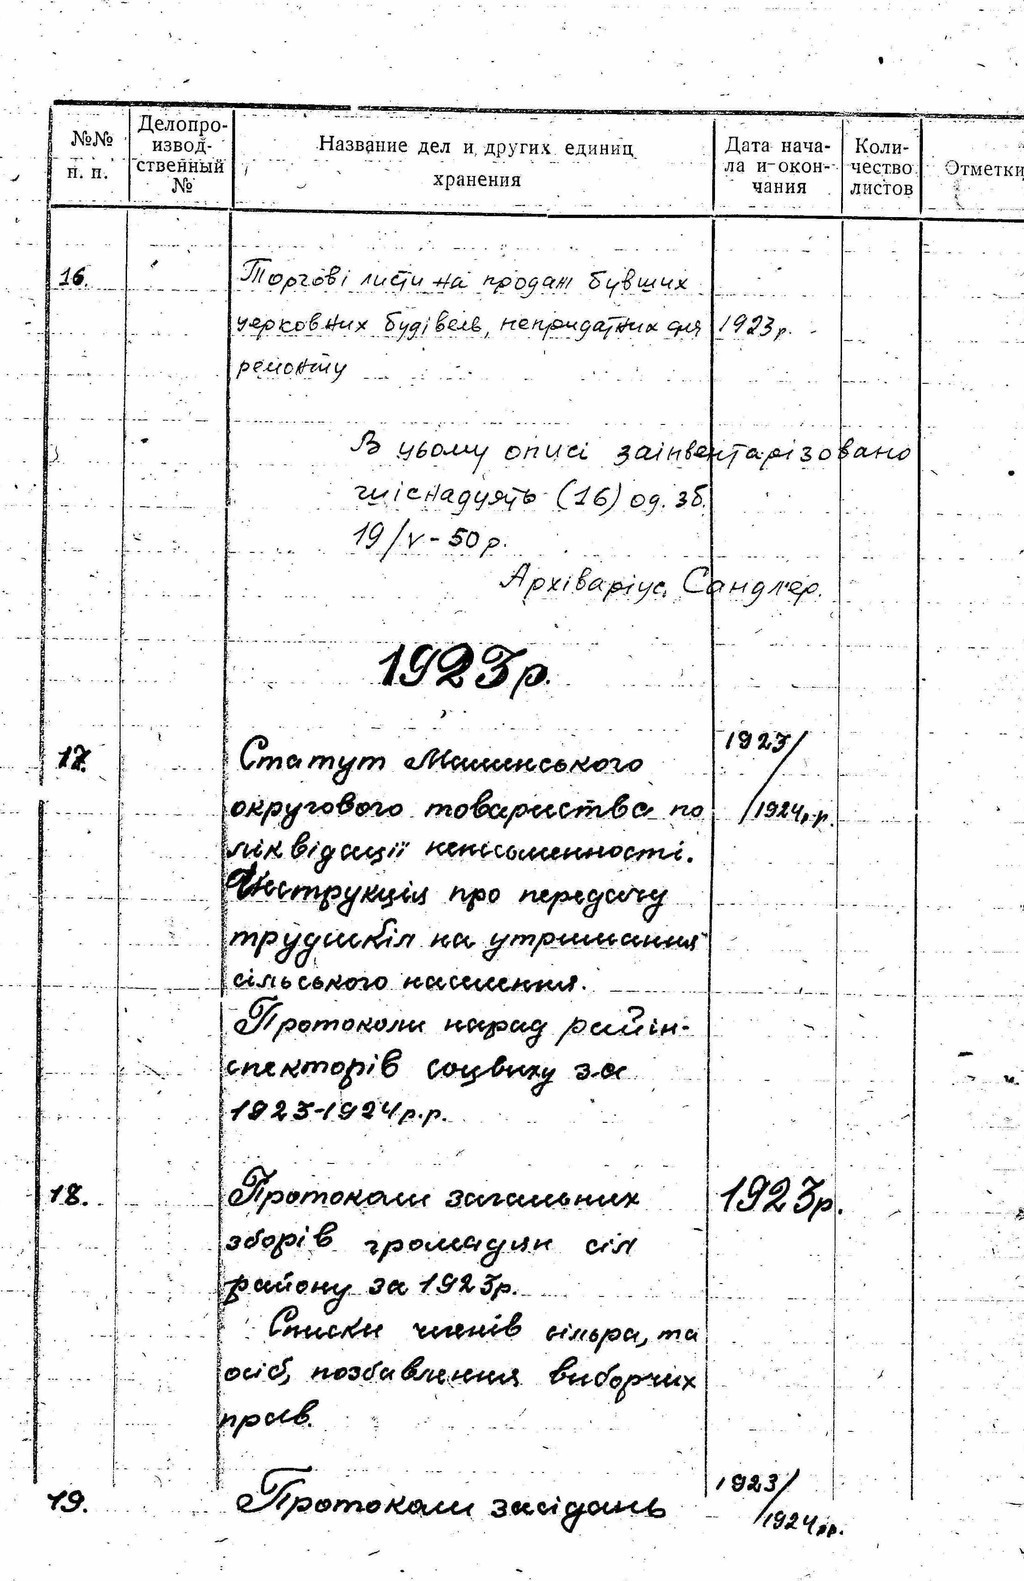 №№ п. п.
Делопро-
извод-
ственный
№
Название дел и других единиц
хранения
Дата нача-
ла и окон-
чания
Коли-
чество
листов
Отметки
16. Торгові листи на продаж бувших
церковних будівель, непридатних для 1923р.
ремонту
В цьому описі заінвентарізовано
шіснадцять (16) од. зб.
19/V-50р.
Архіваріус Сандлер.
1923р.
17. Статут 1923/
округового товариства по /1924р.р.
ліквідації неписьменності.
Інструкція про передачу
трудшкіл на утримання
сільського населення.
Протоколи нарад райін-
спекторів соцвиху за
1923-1924р.р.
18. Протоколи загальних 1923р.
зборів громадян сіл
району за 1923р.
Списки членів сільра, та
осіб, позбавлення виборчих
прав.
19. Протоколи засідань 1923/
/1924рр.